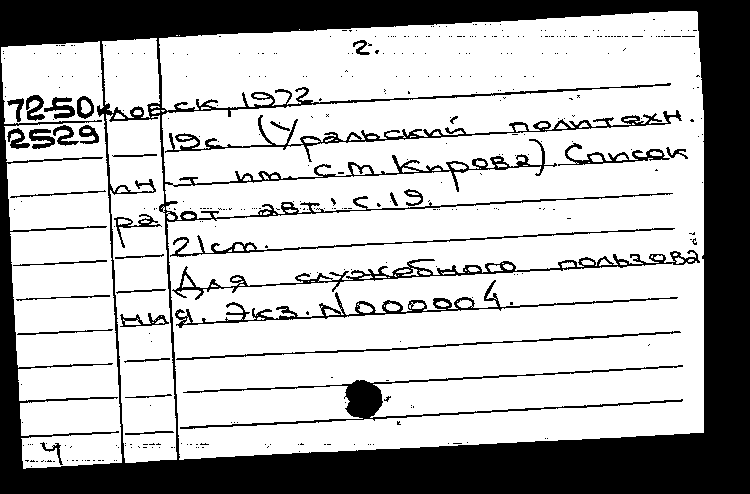 2.
72-50кловск, 1972.
2529 19с. (Уральский политехн.
ин-т им. С.М. Кирова). Список
работ авт.: с. 19.
21cm.
Для служебного пользова-
ния. Экз. N000004.
4